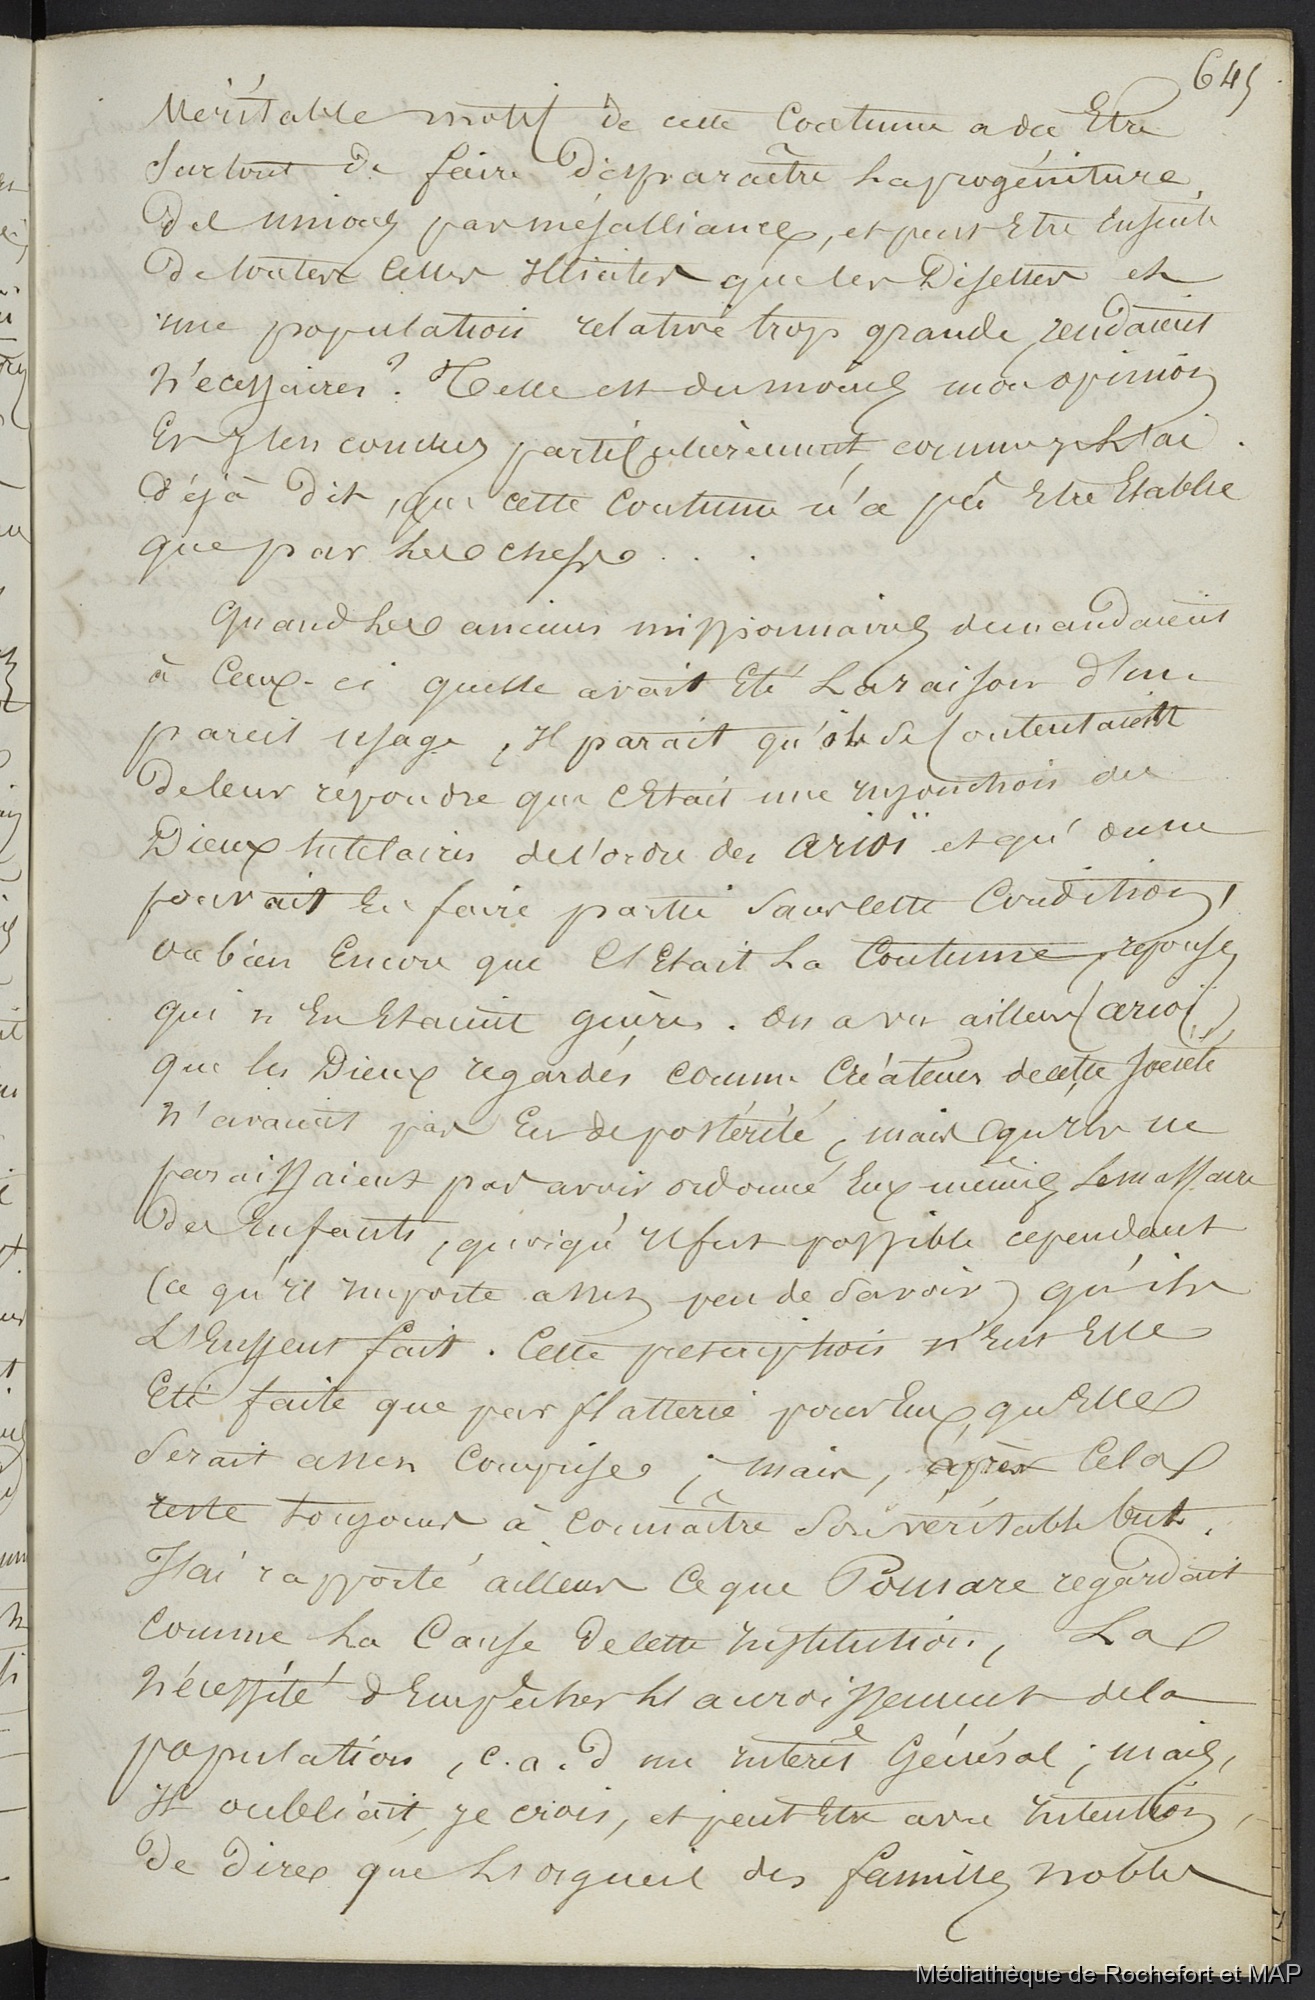 645
Véritable motif de cette Coutume a du Etre
surtout de faire disparaître la progéniture,
de l'union par mésalliance, et peut Etre Ensuite
de toutes celles Illicites que les Disettes et
une population relative trop grande rendaient
nécessaires ? Telle est du moins mon opinion
Et J'en conclus particulièrement, comme je l'ai
déjà dit, que cette Coutume n'a pû Etre Etablie
que par les chefs . . .
Quand les anciens missionnaires demandaient
à Ceux-ci quelle avait Eté la raison d'un
pareil usage, Il paraît qu'ils se Contentaient
de leur répondre que c'Etait une injonction des
Dieux tutélaires de l'ordre des arioï et qu'on ne
pouvait En faire partie sans cette Condition,
ou bien Encore que c'Etait la Coutume, réponses
qui n'En Etaient guères. On a vu ailleurs (arioï)
que les Dieux regardés comme Créateurs de cette société
n'avaient pas Eu de postérité, mais qu'ils ne
paraissaient pas avoir ordonné Eux mêmes le massacre
des Enfants, quoiqu'Il fut possible cependant
(ce qu'il importe assez peu de savoir) qu'ils
l'Eussent fait. Cette prescription n'Eut Elle
Eté faite que par flatterie pour Eux, qu'Elle
serait assez comprise ; mais, après Cela
reste toujours à connaître son véritable but.
J'ai rapporté ailleurs Ce que Pomare regardait
comme la Cause de cette institution, La
nécessité d'Empêcher l'accroissement de la
population, c. a. d un intérêt Général ; mais,
Il oubliait, je crois, et peut Etre avec intention,
de dire que l'orgueil des familles nobles
Médiathèque de Rochefort et MAP